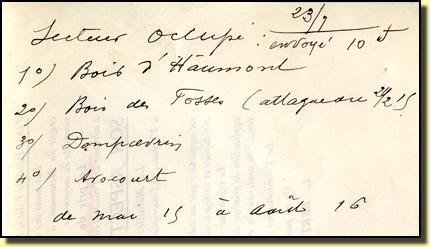 23/7
Secteur Occupé : envoyé 10
1o) Bois d'Haumont
2o) Bois des Fosses (attaque au 21/2 15
3o) Dompcevrin
4o) Avocourt
de mai 15 à août 16